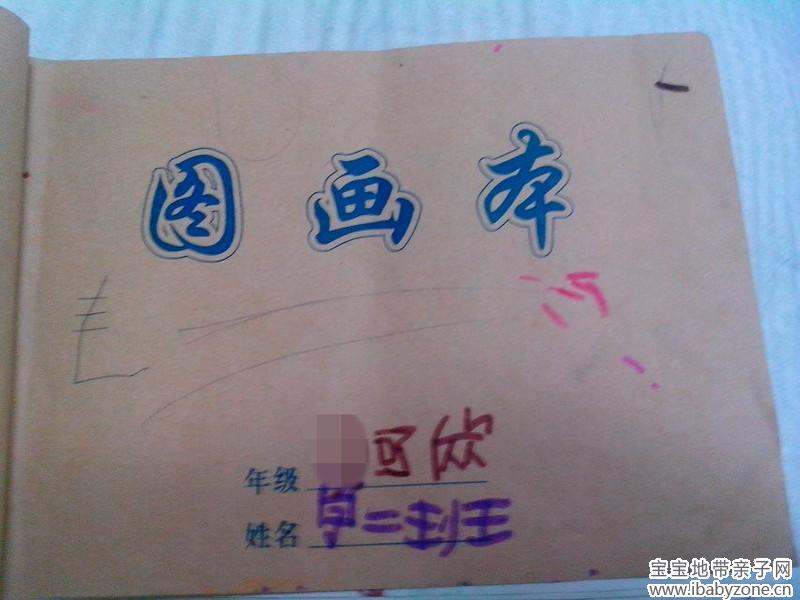 图画本
年级
姓名 早二班王
宝宝地带亲子网
www.ibabyzone.cn